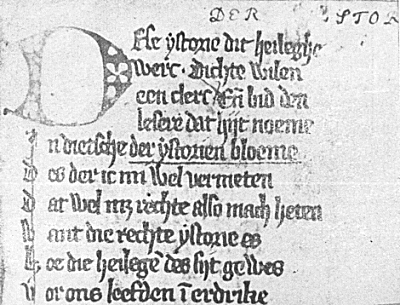 DER STOR
Dese ystorie dit heileghe
werc · Dichte wilen
een clerc Eñ bid den
lesere dat hijt noeme
In dietsche der ystorien bloeme
Des der ic mi wel vermeten
Dat wel mz rechte also mach heten
Want die rechte ystorie es
Hoe die heilegē des sijt gewes
Vor ons leefden ī erdrike